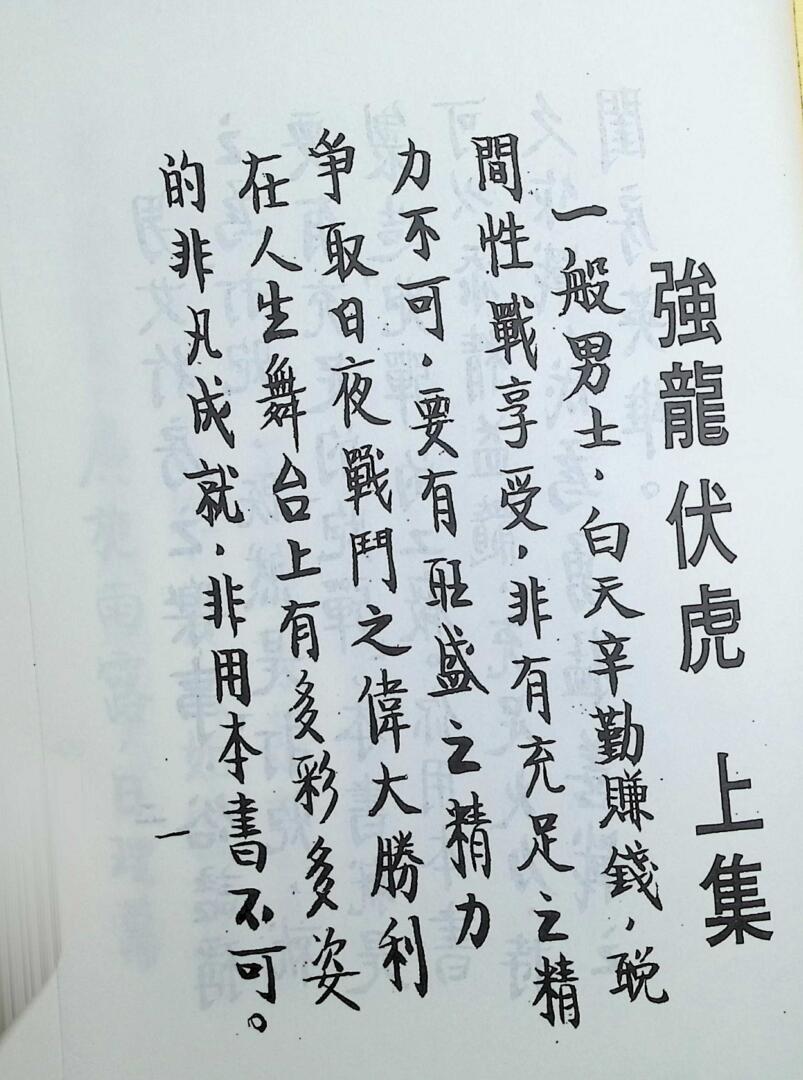 強龍伏虎 上集
一般男士，白天辛勤賺錢，晚
間性戰享受，非有充足之精
力不可，要有旺盛之精力
爭取日夜戰鬥之偉大勝利
在人生舞台上有多彩多姿
的非凡成就，非用本書不可。
一